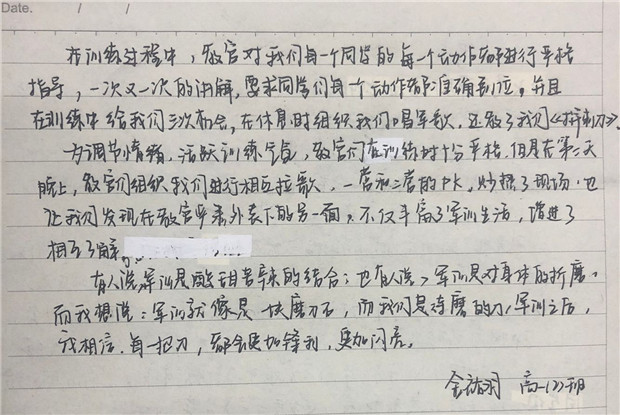 Date. / /
在训练过程中，教官对我们每一个同学的每一个动作都进行严格
指导，一次又一次的讲解，要求同学们每个动作都准确到位。并且
在训练中给我们三次机会，在休息时组织我们唱军歌，还教了我们《拼刺刀》。
为调节情绪，活跃训练气氛，教官们在训练时十分严格，但是在第二天
晚上，教官们组织我们进行相互拉歌，一营和二营的PK，炒热了现场，也
让我们发现在教官严肃外表下的另一面，不仅丰富了军训生活，增进了
相互了解。
有人说，军训是酸甜苦辣的结合；也有人说，军训是对身体的折磨，
而我想说：军训就像是一块磨刀石，而我们是待磨的刀，军训之后，
我相信，每一把刀，都会更加锋利，更加闪亮。
高一(2)班